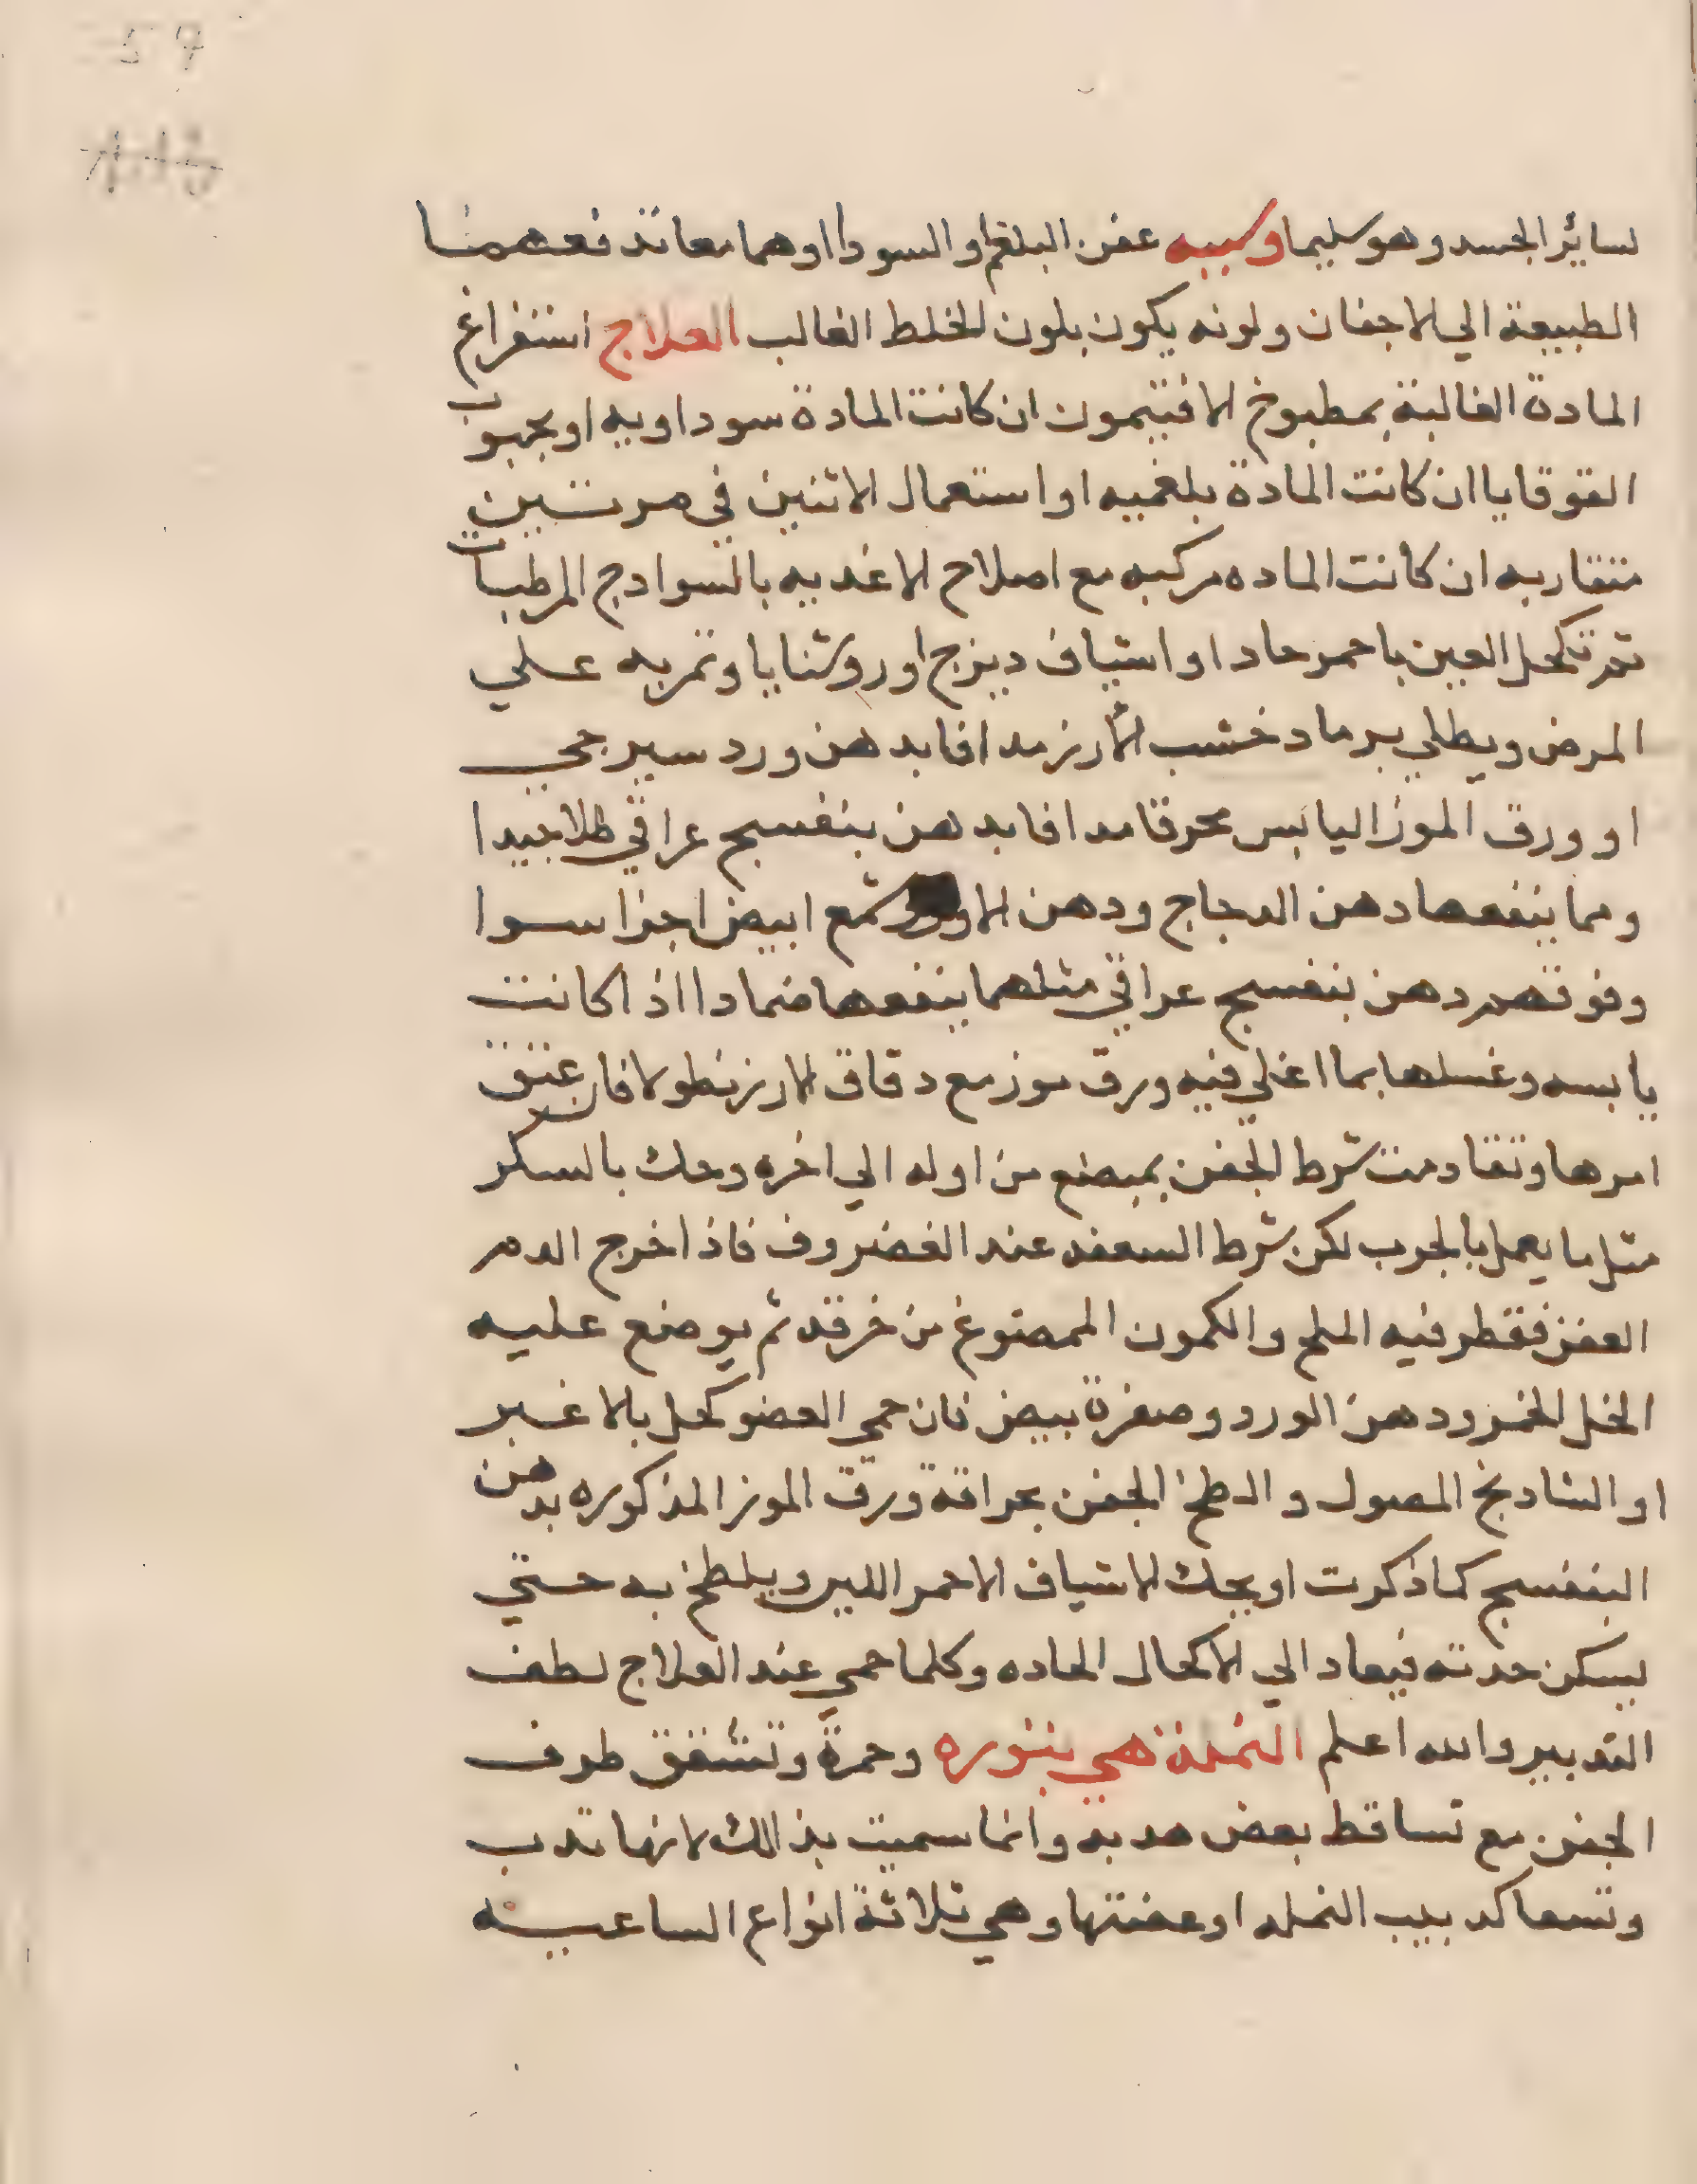 57
لسائر الجسد وهو سليما وسببه عفن البلغم او السودا اوهما معا تدفعهما
الطبيعة الي الاجفان ولونه يكون بلون الخلط الغالب العلاج استفراغ
المادة الغالبة بمطبوخ الافتيمون ان كانت المادة سوداويه او بحبوب
القوقايا ان كانت المادة بلغميه او استعمال الاثنين في مرتين
متقاربه ان كانت الماده مركبه مع اصلاح الاغديه بالسوادج المرطبات
ثم تكحل العين باحمر حاد او اشياف ديزج او روشنايا وتمر به علي
المرض ويطلي برماد خشب الارز مدافا بدهن ورد سيرجي
او ورق الموز اليابس محرقا مدافا بدهن بنفسج عراقي طلا جيدا
ومما ينفعها دهن الدجاج ودهن الاوز شمع ابيض اجزا سوا
وفوقهم دهن بنفسج عراقي مثلهما ينفعها ضمادا اذا كانت
يابسه وغسلها بما اغلي فيه ورق موز مع دقاق الارز نطولا فان عتق
امرها وتقادمت شرط الجفن بمبضع من اوله الي اخره وحك بالسكر
مثل ما يعمل بالجرب لكن شرط السعفه عند الغضروف فاذا خرج الدم
العفن فقطر فيه الملح والكمون الممضوغ من خرقه ثم يوضع عليه
الخل الخمر ودهن الورد وصفرة بيض فان حمي العضو كحل بالاغبر
او الشادنج المصول والطخ الجفن بحراقة ورق الموز المذكوره بدهن
البنفسج كما ذكرت او بحك الاشياف الاحمر اللين ويلطخ به حتي
يسكن حدته فيعاد الي الاكحال الحاده وكلما حمي عند العلاج لطف
التدبير والله اعلم النملة هي بثوره وحمرة وتشقق طرف
الجفن مع تساقط بعض هدبه وانما سميت بذالك لانها تدب
وتسعا كدبيب النمله او عضتها وهي ثلاثة انواع الساعيه